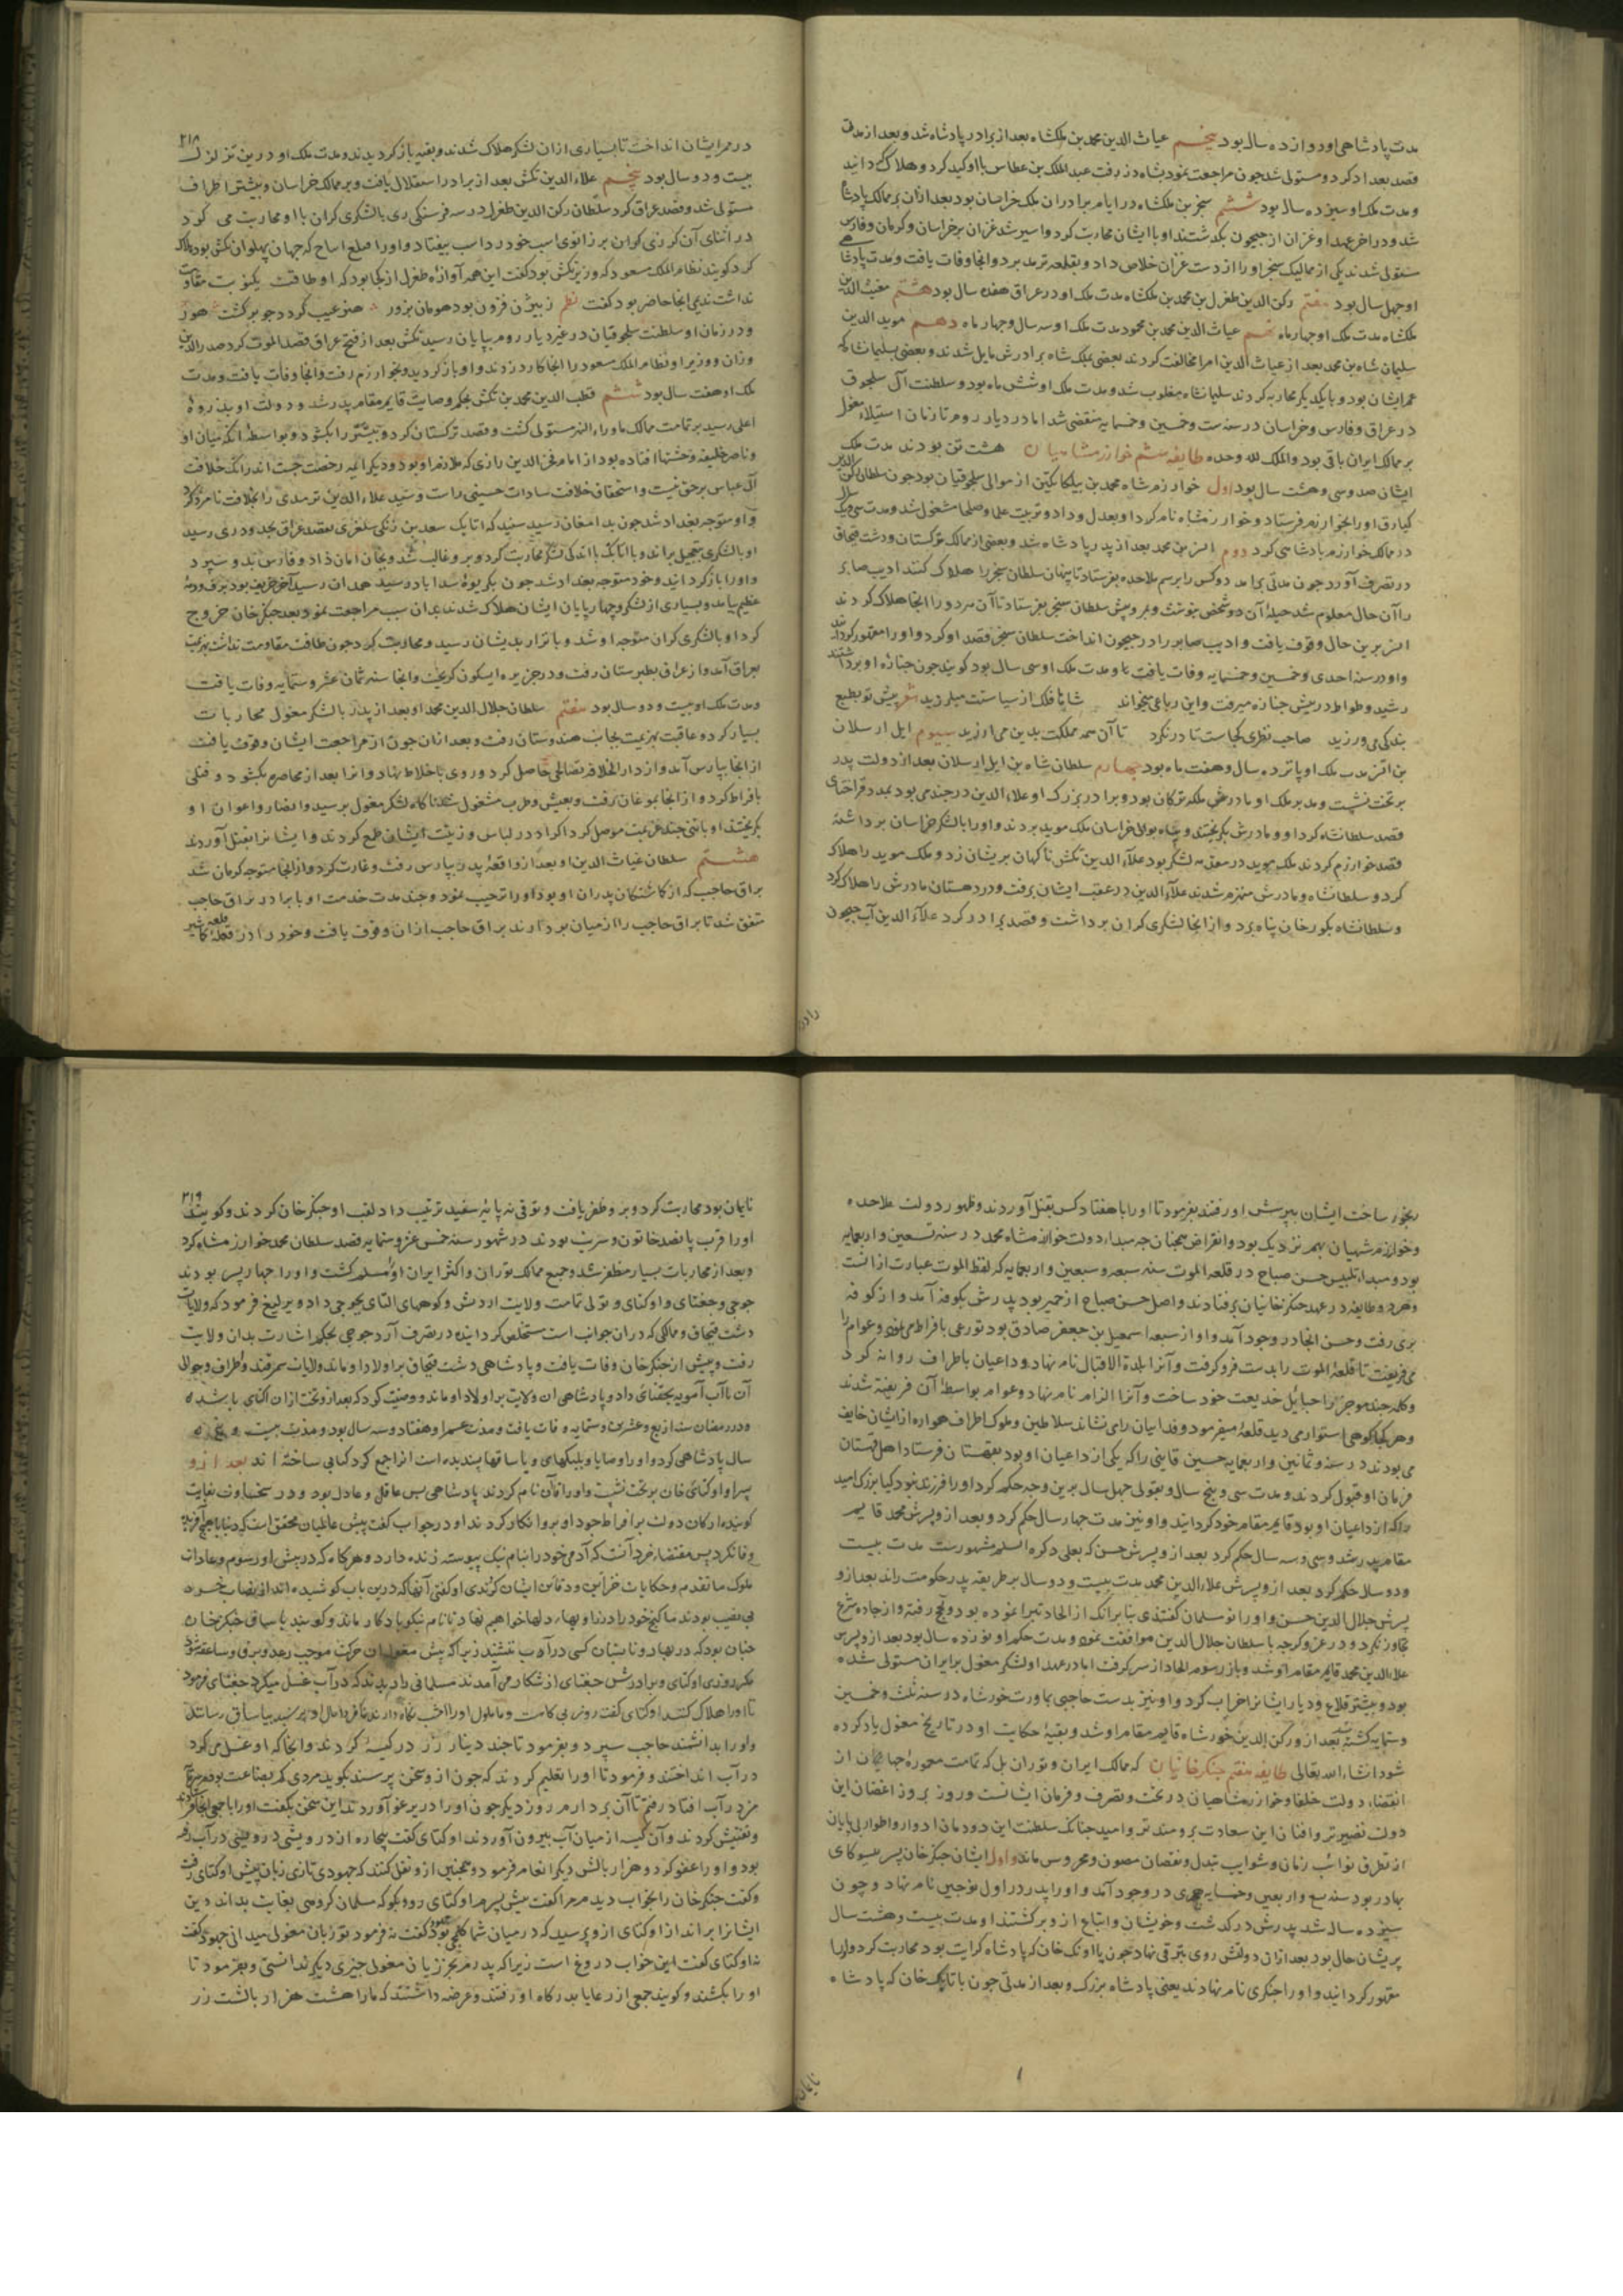 مدت پادشاهی او دوازده سال بود پنجم غیاث الدین محمد بن ملکشاه بعد از برادر پادشاه شد و بعد از مدتی
قصد بغداد کرد و مستولی شد چون مراجعت نمود بشاه دز رفت عبد الملک بن عطاش با او کید کرد و هلاک گردانید
و مدت ملک او سیزده سال بود ششم سنجر بن ملکشاه در ایام برادران ملک خراسان بود بعد از آن بر ممالک پادشاه
شد و در آخر عهد او غزان از جیحون بگذشتند او با ایشان محاربت کرد و اسیر شد غزان بر خراسان و کرمان و فارس
مستولی شدند یکی از ممالیک سنجر او را از دست غزان خلاص داد و بقلعه ترمد برد و انجا وفات یافت و مدت پادشاهی
او چهل سال بود هفتم رکن الدین طغرل بن محمد بن ملکشاه مدت ملک او در عراق هفده سال بود هشتم مغیث الدین
ملکشاه مدت ملک او چهار ماه نهم غیاث الدین محمد بن محمود مدت ملک او سه سال و چهار ماه دهم موید الدین
سلیمان شاه بن محمد بعد از غیاث الدین امرا مخالفت کردند بعضی بملک شاه برادرش مایل شدند و بعضی بسلیمانشاه که
عم ایشان بود و با یکدیگر محاربه کردند سلیمانشاه مغلوب شد و مدت ملک او شش ماه بود و سلطنت آل سلجوق
در عراق و فارس و خراسان در سنه ست و خمسین و خمسمایه منقضی شد اما در دیار روم تا زمان استیلاء مغول
بر ممالک ایران باقی بود و الملک لله وحده طایفه ششم خوارزمشاهیان هشت تن بودند مدت ملک
ایشان صد و سی و هشت سال بود اول خوارزم شاه محمد بن بیلکا تکین از موالی سلجوقیان بود چون سلطان رکن الدین
کیارق او را بخوارزم فرستاد و خوارزمشاه نام کرد او بعدل و داد و تربیت علما و صلحا مشغول شد و مدت سی و یک سال
در ممالک خوارزم پادشاهی کرد دوم اتسز بن محمد بعد از پدر پادشاه شد و بعضی از ممالک ترکستان و دشت قبچاق
در تصرف آورد چون مدتی برامد دو کس را برسم ملاحده بفرستاد تا پنهان سلطان سنجر را هلاک کنند ادیب صابر
را آن حال معلوم شد حیله آن دو شخص بنوشت و بمرو پیش سلطان سنجر بفرستاد تا آن مرد را انجا هلاک کردند
اتسز برین حال وقوف یافت و ادیب صابر را در جیحون انداخت سلطان سنجر قصد او کرد و او را مقهور کردند
و او در سنه احدی و خمسین و خمسمایه وفات یافت و مدت ملک او سی سال بود گویند چون جنازه او برداشتند
رشید وطواط در پیش جنازه میرفت و این رباعی میخواند شاها فلک از سیاستت میلرزید شعر پیش تو بطبع
بندگی می ورزید صاحب نظری کجاست تا درنگرد تا آن همه مملکت بدین می ارزید سیوم ایل ارسلان
بن اتسز مدت ملک او پانزده سال و هفت ماه بود چهارم سلطان شاه بن ایل ارسلان بعد از دولت پدر
بر تخت نشست و مدبر ملک او مادرش ملکه ترکان بود و برادر بزرگ او علاء الدین در جند می بود بمدد قراختای
قصد سلطانشاه کرد او و مادرش بگریختند و پناه بوالی خراسان ملک موید بردند و او را با لشکر خراسان برداشته
قصد خوارزم کردند ملک موید در مقدمه لشکر بود علاء الدین تکش ناگهان بریشان زد و ملک موید را هلاک
کرد و سلطانشاه و مادرش منهزم شدند علاء الدین در عقب ایشان برفت و در دهستان مادرش را هلاک کرد
و سلطانشاه بگورخان پناه برد و از انجا لشکری گران برداشت و قصد برادر کرد علاء الدین آب جیحون
۲۱۸
در ممر ایشان انداخت تا بسیاری از ان لشکر هلاک شدند و بقیه باز گردیدند و مدت ملک او درین تزلزل
بیست و دو سال بود پنجم علاء الدین تکش بعد از برادر استقلال یافت و بر ممالک خراسان و بیشتر اطراف
مستولی شد و قصد عراق کرد سلطان رکن الدین طغرل در سه فرسنکی ری با لشکری گران با او محاربت می کرد
در اثنای آن گرزی گران بر زانوی اسب خود زد اسب بیفتاد و او را
کرد گویند نظام الملک مسعود که وزیر تکش بود گفت این همه آوازه طغرل از کجا بود که او طاقت یک نوبت مقاومت
نداشت ندیمی انجا حاضر بود گفت نظم ز بیژن فزون بود هومان بزور هنر عیب گردد چو برگشت هور
و در زمان او سلطنت سلجوقیان در غیر دیار روم بپایان رسید تکش بعد از فتح عراق قصد الموت کرد صدر الدین
وزان و وزیر او نظام الملک مسعود را انجا کارد زدند و او باز گردید و بخوارزم رفت و انجا وفات یافت و مدت
ملک او هفت سال بود ششم قطب الدین محمد بن تکش بحکم وصایت قایم مقام پدر شد و دولت او بذروه
اعلی رسید بر تمامت ممالک ماوراء النهر مستولی گشت و قصد ترکستان کرد و بیشتر را بگشود و بواسطه انکه میان او
و ناصر خلیفه وحشتها افتاده بود از امام فخر الدین رازی که ملازم او بود و دیگر ایمه رخصت جست اندر انک خلافت
آل عباس بر حق نیست و استحقاق خلافت سادات حسینی راست و سید علاء الدین ترمدی را بخلافت نامزد کرد
و او متوجه بغداد شد چون بدامغان رسید شنید که اتابک سعد بن زنگی سلغری بقصد عراق بحدود ری رسید
او با لشکری بتعجیل براند و با اتابک با اندکی لشکر محاربت کرد و برو غالب شد و بجان امان داد و فارس بدو سپرد
و او را باز گردانید و خود متوجه بغداد شد چون بگریوه اسداباد رسید همدان رسید آخر خریف بود برف و دمه
عظیم بیامد و بسیاری از لشکر و چهارپایان ایشان هلاک شدند بدان سبب مراجعت نمود و بعد چنگیزخان خروج
کرد او با لشکری گران متوجه او شد و با تزار بدیشان رسید و محاربت کرد چون طاقت مقاومت نداشت بهزیمت
بعراق آمد و از عراق بطبرستان رفت و در جزیره ابسکون گریخت و انجا سنه ثمان عشر و ستمایه وفات یافت
و مدت ملک او بیست و دو سال بود هفتم سلطان جلال الدین محمد او بعد از پدر با لشکر مغول محاربات
بسیار کرد و عاقبت بهزیمت بجانب هندوستان رفت و بعد از ان چون از مراجعت ایشان وقوف یافت
از انجا بپارس آمد و از دار الخلافه رضائی حاصل کرد و روی باخلاط نهاد و انرا بعد از محاصره بگشود و قتلی
بافراط کرد و از انجا بموغان رفت و بعیش و طرب مشغول شد ناگاه لشکر مغول برسید و انصار و اعوان او
بگریختند او با تنی چند عزیمت موصل کرد اکراد در لباس و زینت ایشان طمع کردند و ایشانرا بقتل آوردند
هشتم سلطان غیاث الدین او بعد از واقعه پدر بپارس رفت و غارت کرد و از انجا متوجه کرمان شد
براق حاجب که از گماشتگان پدران او بود او را ترحیب نمود و چند مدت خدمت او با برادر براق حاجب
متفق شد تا براق حاجب را از میان بردارند براق حاجب از ان وقوف یافت و خود را در قلعه
رنجور ساخت ایشان بپرسش او رفتند بفرمود تا او را با هفتاد کس بقتل آوردند و ظهور دولت ملاحده
و خوارزمشهیان بهم نزدیک بود و انقراض همچنان چه مبداء دولت خوارزمشاه محمد در سنه تسعین و اربعمایه
بود و مبداء تلبیس حسن صباح در قلعه الموت سنه سبعه و سبعین و اربعمایه که لفظ الموت عبارت از انست
و هر دو طایفه در عهد چنگزخانیان برفتادند و اصل حسن صباح از حمیر بود پدرش بکوفه آمد و از کوفه
بری رفت و حسن انجا در وجود آمد و او از سبعه اسمعیل بن جعفر صادق بود تورعی بافراط می نمود و عوام را
می فریفت تا قلعه الموت را بدست فرو گرفت و آنرا بلدة الاقبال نام نهاد و داعیان باطراف روانه کرد
و کلمه چند موجز را حبایل خدیعت خود ساخت و آنرا الزام نام نهاد و عوام بواسطه آن فریفته شدند
و هر کجا کوهی استوار می دید قلعه میفرمود و فداییان را می نشاند سلاطین و ملوک اطراف همواره از ایشان خایف
می بودند در سنه و ثمانین و اربعمایه حسین قاینی را که یکی از داعیان او بود بقهستان فرستاد اهل قهستان
فرمان او قبول کردند و مدت سی و پنج سال و بقولی چهل سال برین وجه حکم کرد او را فرزند نبود کیا بزرگ امید
را که از داعیان او بود قایم مقام خود گردانید و او نیز مدت چهار سال حکم کرد و بعد از و پسرش محمد قایم
مقام پدر شد و سی و سه سال حکم کرد بعد از و پسرش حسن که بعلی ذکره السلم مشهورست مدت بیست
و دو سال حکم کرد بعد از و پسرش علاء الدین محمد مدت بیست و دو سال بر طریقه پدر حکومت راند بعد از و
پسرش جلال الدین حسن و او را نو مسلمان گفتندی بنابر انک از الحاد تبرا نموده بود و بحج رفته و از جاده شرع
تجاوز نکرد و در غزو گرجه با سلطان جلال الدین موافقت نمود و مدت حکم او نوزده سال بود بعد از و پسرش
علاء الدین محمد قایم مقام او شد و باز رسوم الحاد از سر گرفت اما در عهد او لشکر مغول بر ایران مستولی شده
بود و بیشتر قلاع و دیار ایشانرا خراب کرد و او نیز بدست حاجبی بمشاورت خورشاه در سنه ثلث و خمسین
و ستمایه کشته شد بعد از و رکن الدین خورشاه قایم مقام او شد و بقیه حکایت او در تاریخ مغول یاد کرده
شود انشاء الله تعالی طایفه هفتم چنگزخانیان که ممالک ایران و توران بل که تمامت معموره جهان از
انقضاء دولت خلفا و خوارزمشاهیان در تحت و تصرف و فرمان ایشانست و روز بروز اغصان این
دولت نضیرتر و افنان این سعادت برومندتر و امید چنانک سلطنت این دودمان ادوار و اطوار بی پایان
از تطرق نوائب زمان و شوایب تبدل و نقصان مصون و محروس ماند و اول ایشان چنگزخان پسر ییسوکای
بهادر بود سنه تسع و اربعین و خمسمایه هجری در وجود آمد و او را پدر در اول توجین نام نهاد و چون
سیزده ساله شد پدرش درگذشت و خویشان و اتباع از و برگشتند او مدت بیست و هشت سال
پریشان حال بود بعد از ان دولتش روی بترقی نهاد چون با اونک خان که پادشاه کرایت بود محاربت کرد و او را
مقهور گردانید و او را چنگزی نام نهادند یعنی پادشاه بزرگ و بعد از مدتی چون با تایانک خان که پادشاه
۲۱۹
نایمان بود محاربت کرد و برو ظفر یافت و توقی نه پایه سفید ترتیب داد لقب او چنگزخان کردند و گویند
او را قرب پانصد خاتون و سریت بودند در شهور سنه خمس عشر و ستمایه قصد سلطان محمد خوارزمشاه کرد
و بعد از محاربات بسیار مظفر شد و جمیع ممالک توران و اکثر ایران او را مسلم گشت و او را چهار پسر بودند
جوجی و جغتای و اوکتای و تولی تمامت ولایت اردیش و کوههای التای بجوجی داد و یرلیغ فرمود که ولایات
دشت قبچاق و ممالکی که در ان جوانب است مستخلص گردانیده در تصرف آرد جوجی بحکم اشارت بدان ولایت
رفت و پیش از چنگزخان وفات یافت و پادشاهی دشت قبچاق بر اولاد او ماند و ولایات سمرقند و اطراف و حوالی
آن تا آب آمویه بجغتای داد و پادشاهی ان ولایت بر اولاد او ماند و وصیت کرد که بعد از و تخت از ان اکتای باشد
و در رمضان سنه اربع و عشرین و ستمایه وفات یافت و مدت عمر او هفتاد و سه سال بود و مدت بیست و پنج
سال پادشاهی کرد و او را وصایا و بیلیکهای و یاساقها پسندیده است انرا جمع کرد کتابی ساخته اند بعد از و
پسر او اوکتای خان بر تخت نشست و او را قاآن نام کردند پادشاهی بس عاقل و عادل بود و در سخاوت بغایت
گویند ارکان دولت بر افراط جود او برو انکار کردند او در جواب گفت پیش عالمیان محقق است که دنیا با هیچ آفریده
وفا نکرد پس مقتضاء خرد آنست که آدمی خود را بنام نیک پیوسته زنده دارد و هرگاه که در پیش او رسوم و عادات
ملوک ما تقدم و حکایات خزاین و دفاین ایشان کردندی او گفتی آنها که درین باب کوشیده اند از نصاب خرد
بی نصیب بودند ما گنج خود را در زوایاء دلها خواهیم نهاد تا نام نیکو یادگار ماند و گویند یاساق چنگزخان
چنان بود که در بهار و تابستان کسی در آب ننشیند زیرا که پیش مغول ان حرکت موجب رعد و برق و صاعقه بود
مگر روزی اوکتای و برادرش جغتای از شکار می آمدند مسلمانی را دیدند که در آب غسل میکرد جغتای فرمود
تا او را هلاک کنند اوکتای گفت روز بی گاهست و ما ملول او را امشب نگاه دارند تا فردا حال او پرسیده بیاساق رسانند
و او را بدانشمند حاجب سپرد و بفرمود تا چند دینار زر در کیسه کردند و انجا که او غسل می کرد
در آب انداختند و فرمود تا او را تعلیم کردند که چون از و سخن پرسند بگوید مردی کم بضاعت بودم
من در آب افتاد رفتم تا آن بردارم روز دیگر چون او را در یرغو آوردند این سخن بگفت او را با
و تفتیش کردند و آن کیسه از میان آب بیرون آوردند اوکتای گفت بیچاره از درویشی در آب رفته
بود و او را عفو کرد و هزار بالش دیگر انعام فرمود و همچنین از و نقل کنند که جهودی تازی زبان پیش اوکتای رفت
و گفت چنگزخان را بخواب دیدم مرا گفت پیش پسرم اوکتای رو و بگو که مسلمان گروهی بغایت بداند دین
ایشانرا براندازد اوکتای از و پرسید که در میان شما کلمچی بود گفت نه فرمود تو زبان مغولی میدانی جهود گفت
نه اوکتای گفت این خواب دروغ است زیرا که پدرم بجز زبان مغولی چیزی دیگر ندانستی و بفرمود تا
او را بکشند و گویند جمعی از رعایا بدرگاه او رفتند و عرضه داشتند که ما را هشت هزار بالشت زر